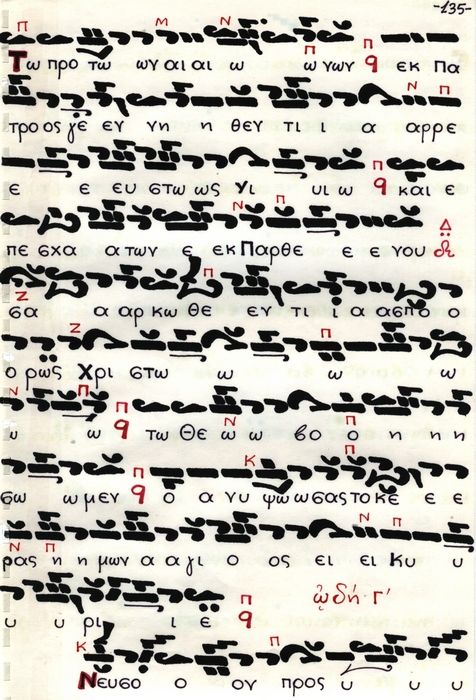 -135-
Τω προ τω ωναιαι ω ω νων π̣ϙ εκ πα
τρο ος γε εν νη η θεν τι ι α αρρε
ε ε ευ στω ως γι υι ω ϙ και ε
πε σχα α των ε εκ Παρθε ε ε νου Δ
σα α αρ κω θε εν τι α ασπο ο
ο ρως Χρι στω ω ω ω ω
ω ω ϙ τω Θε ω ω βο ο η η η
σω ω μεν ϙ ο α νυ ψω ω σας το κε ε ε
ρας η η μων α αγι ο ος ει ει Κυ υ
υ υ ρι ι ε ϙ ᾠδή· Γ'
Νευσο ο ον προς υ υ υ